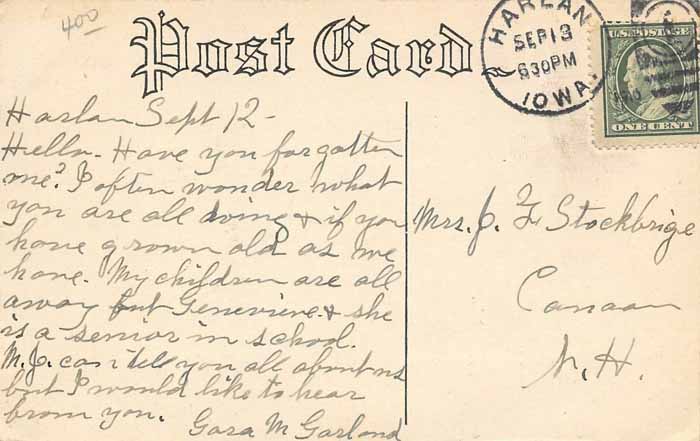 400
Post Card
HARLAN
SEP 13
630PM
IOWA.
U.S. POSTAGE
ONE CENT
Harlan Sept 12-
Hello- Have you forgotten
me? I often wonder what
you are all doing & if you
have grown old as we
have. My children are all
away but Genevieve & she
is a senior in school.
M.J. can tell you all about us
but I would like to hear
from you.
Gara M Garland
Mrs. J. F Stockbrige
Canaan
N.H.